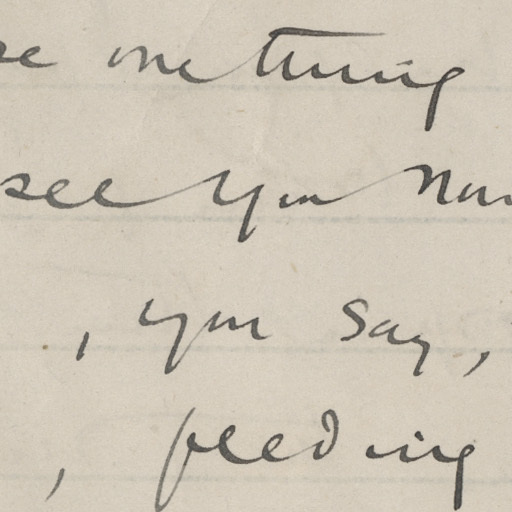 one thing
see you now
, you say,
, feeding